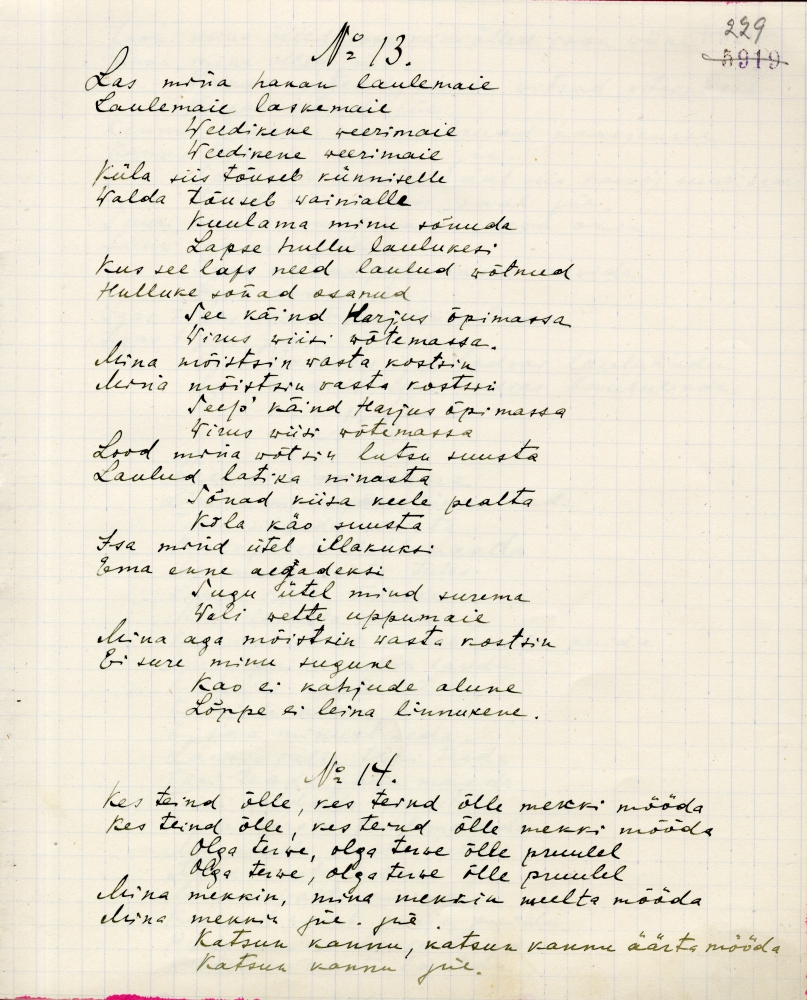 229
5919
№ 13.
Las miña hakan laulemaie
Laulemaie laskemaie
Weedikene weerimaie
Weedikene weerimaie
Küla siis tõuseb künniselle
Walda tõuseb wainialle
Kuulama minu sõnuda
Lapse hullu laulukesi
Kus see laps need laulud wõtnud
Hulluke soñad osanud
See käind Harjus õpimassa
Wirus wiisi wõtemassa.
Mina mõistsin wasta kostsin
Mina mõistsin vasta kostsin
Seep' käind Harjus õpimassa
Wirus wiisi wõtemassa
Lood miña wõtsin lutsu suusta
Laulud latika ninasta
Sõnad kiisa keele pealta
Kõla käo suusta
Isa miñd ütel illakuksi
Ema enne aegadeksi
Sugu ütel mind surema
Weli wette uppumaie
Mina aga mõistsin wasta kostsin
Ei sure minu sugune
Kao ei kahjude alune
Lõppe ei leina linnukene.
№ 14.
Kes teind õlle, kes teind õlle mekki mööda
Kes teind õlle, kes teind õlle mekki mööda
Olga terwe, olga terwe õlle pruulel
Olga terwe, olga terwe õlle pruulel
Mina mekkin, mina mekkin meelta mööda
Mina mekkin jne. jne.
Katsun kannu, katsun kannu äärta mööda
Katsun kannu jne.